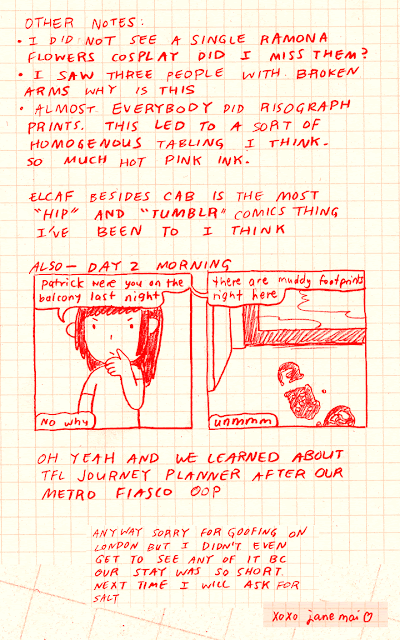 OTHER NOTES:
• I DID NOT SEE A SINGLE RAMONA
FLOWERS COSPLAY DID I MISS THEM?
• I SAW THREE PEOPLE WITH BROKEN
ARMS WHY IS THIS
• ALMOST EVERYBODY DID RISOGRAPH
PRINTS. THIS LED TO A SORT OF
HOMOGENOUS TABLING I THINK.
SO MUCH HOT PINK INK.
ELCAF BESIDES CAB IS THE MOST
"HIP" AND "TUMBLR" COMICS THING
I'VE BEEN TO I THINK
ALSO — DAY 2 MORNING
patrick were you on the
balcony last night
No why
there are muddy footprints
right here
unmmm
OH YEAH AND WE LEARNED ABOUT
TFL JOURNEY PLANNER AFTER OUR
METRO FIASCO OOP
ANYWAY SORRY FOR GOOFING ON
LONDON BUT I DIDN'T EVEN
GET TO SEE ANY OF IT BC
OUR STAY WAS SO SHORT
NEXT TIME I WILL ASK FOR
SALT
xoxo jane mai ♡